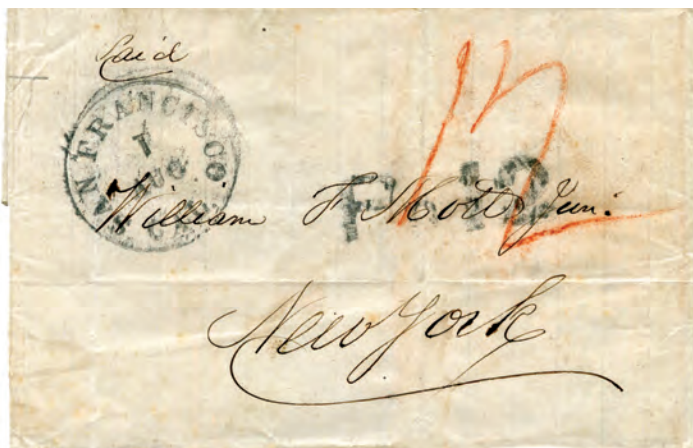 Paid
SAN FRANCISCO
1
AUG
CAL.
12
William F Mott Jun:
New York